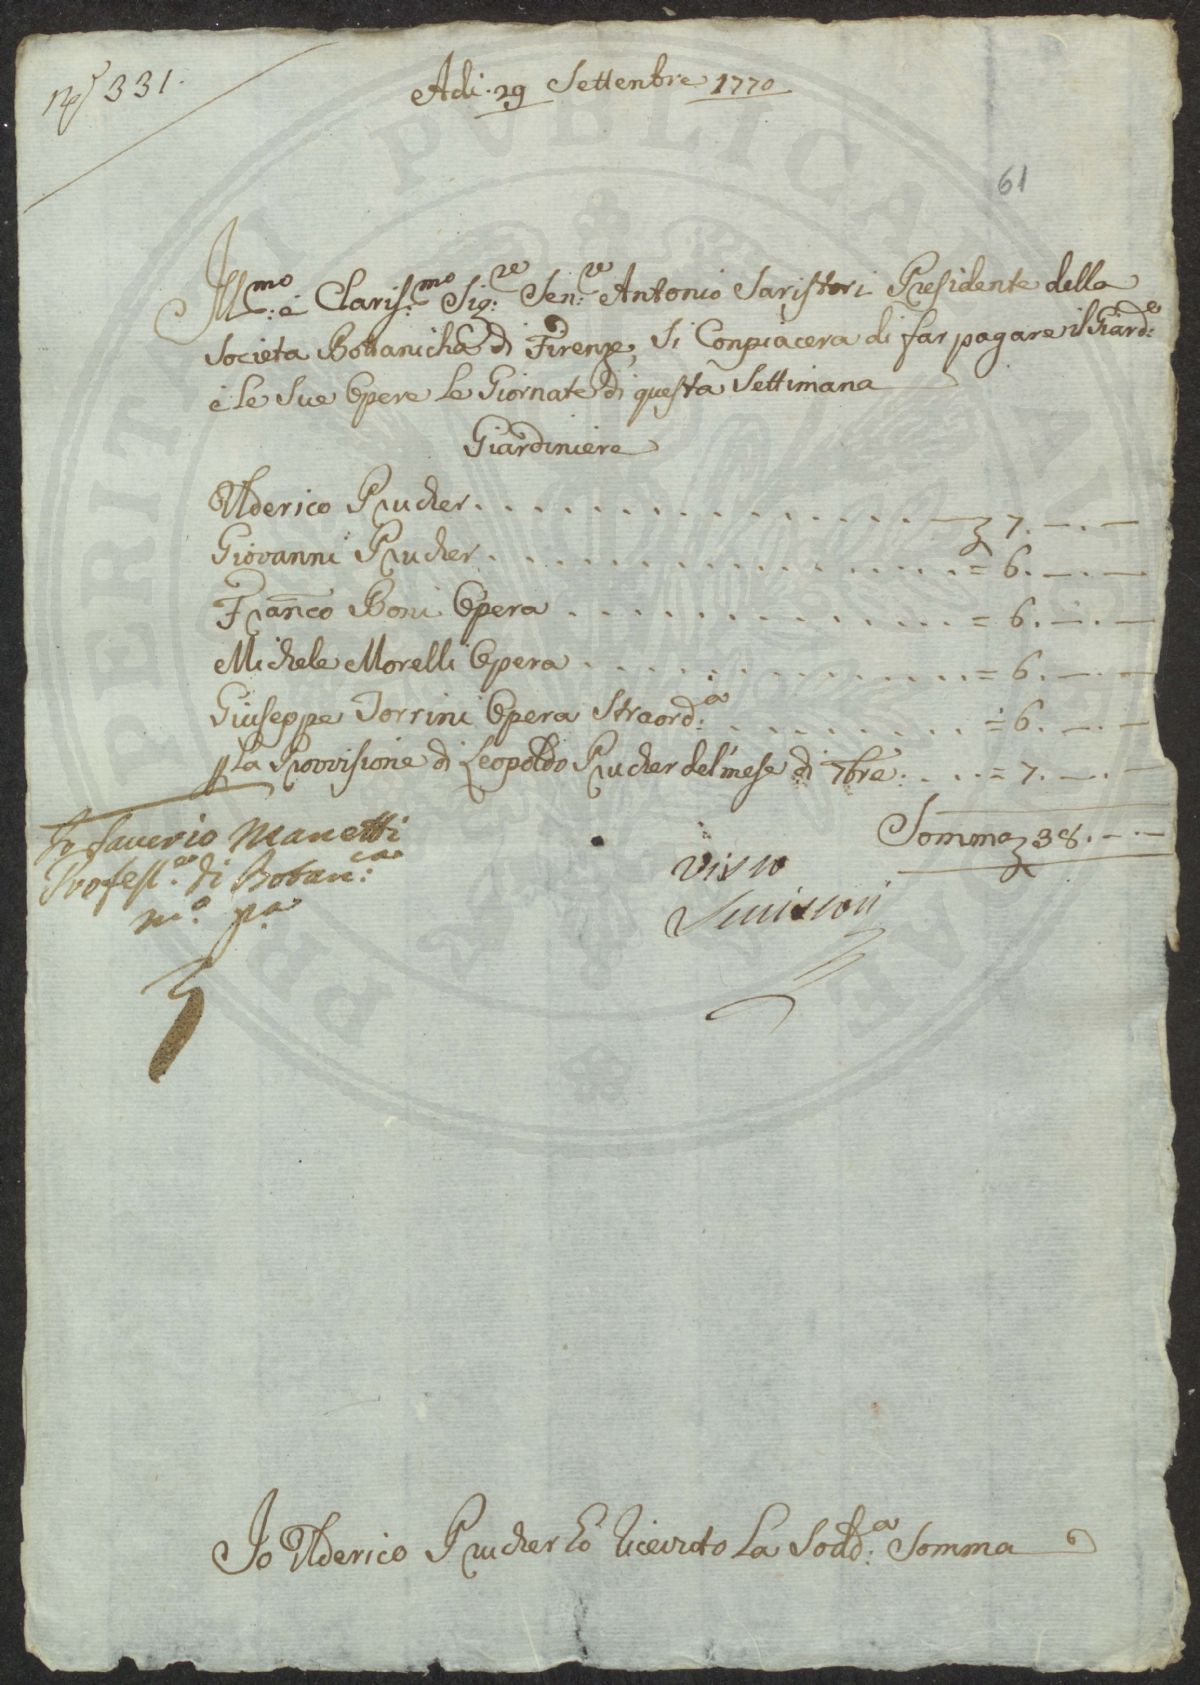 N° 331.
Adi. 29 Settenbre 1770
61
Ill:mo é Claris:mo Sig:re Sen:re Antonio Saristori Presidente della
Societa Bottanicha di Firenze, Si Conpiacera di far pagare il Giard:e
é le Sue Opere le Giornate di questa Settimana
Giardiniere
Uderico Prucher . . . . . . . . . . . . . . . . 7. — . —
Giovanni Prucher . . . . . . . . . . . . . . . . = 6. — . —
Franco Boni Opera . . . . . . . . . . . . . . = 6. — . —
Michele Morelli Opera . . . . . . . . . . . . . = 6. — . —
Giuseppe Torrini Opera Straord:a . . . . . . . . = 6. — . —
La Provvisione di Leopoldo Prucher del mese di 7bre . . . . = 7. — . —
Somma 38. — . —
Io Saverio Manetti
Profess:re di Botan:ca
m:o p:a
Visto
Io Uderico Prucher ho ricevuto La Sodd:a Somma
PERITAT I PUBLICAE